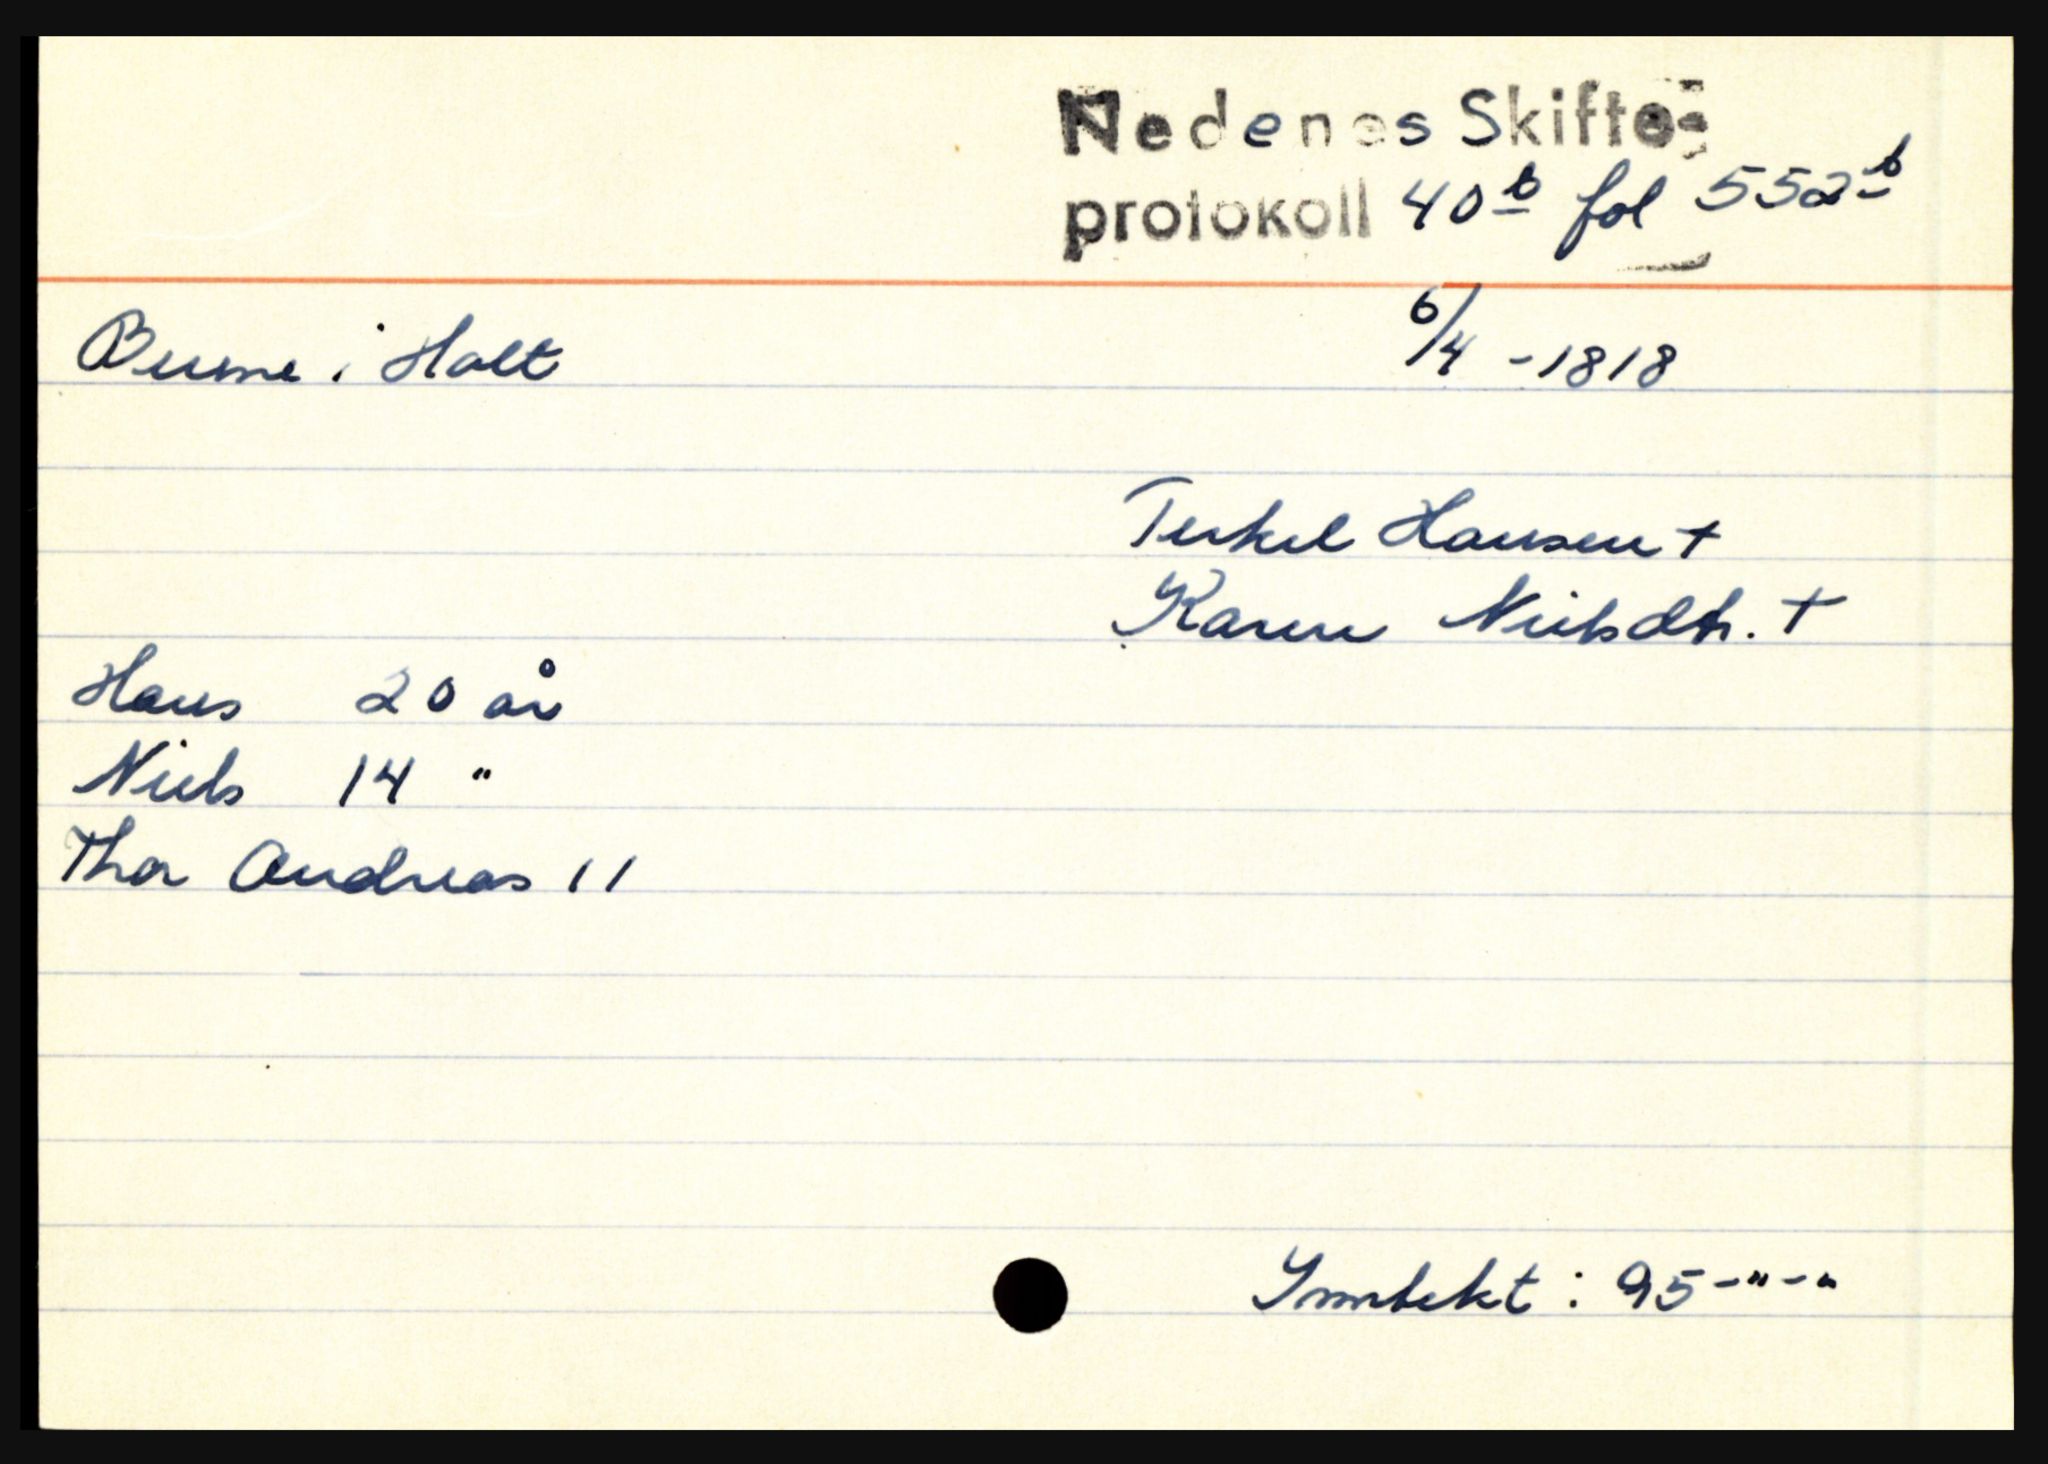 Nedenes Skifte-
protokoll 40b fol 552b
Berme i Holt 6/4 -1818
Terkel Hansen +
Karen Nielsdtr. +
Hans 20 år
Niels 14 "
Thor Andreas 11
Inntekt : 95-"-"